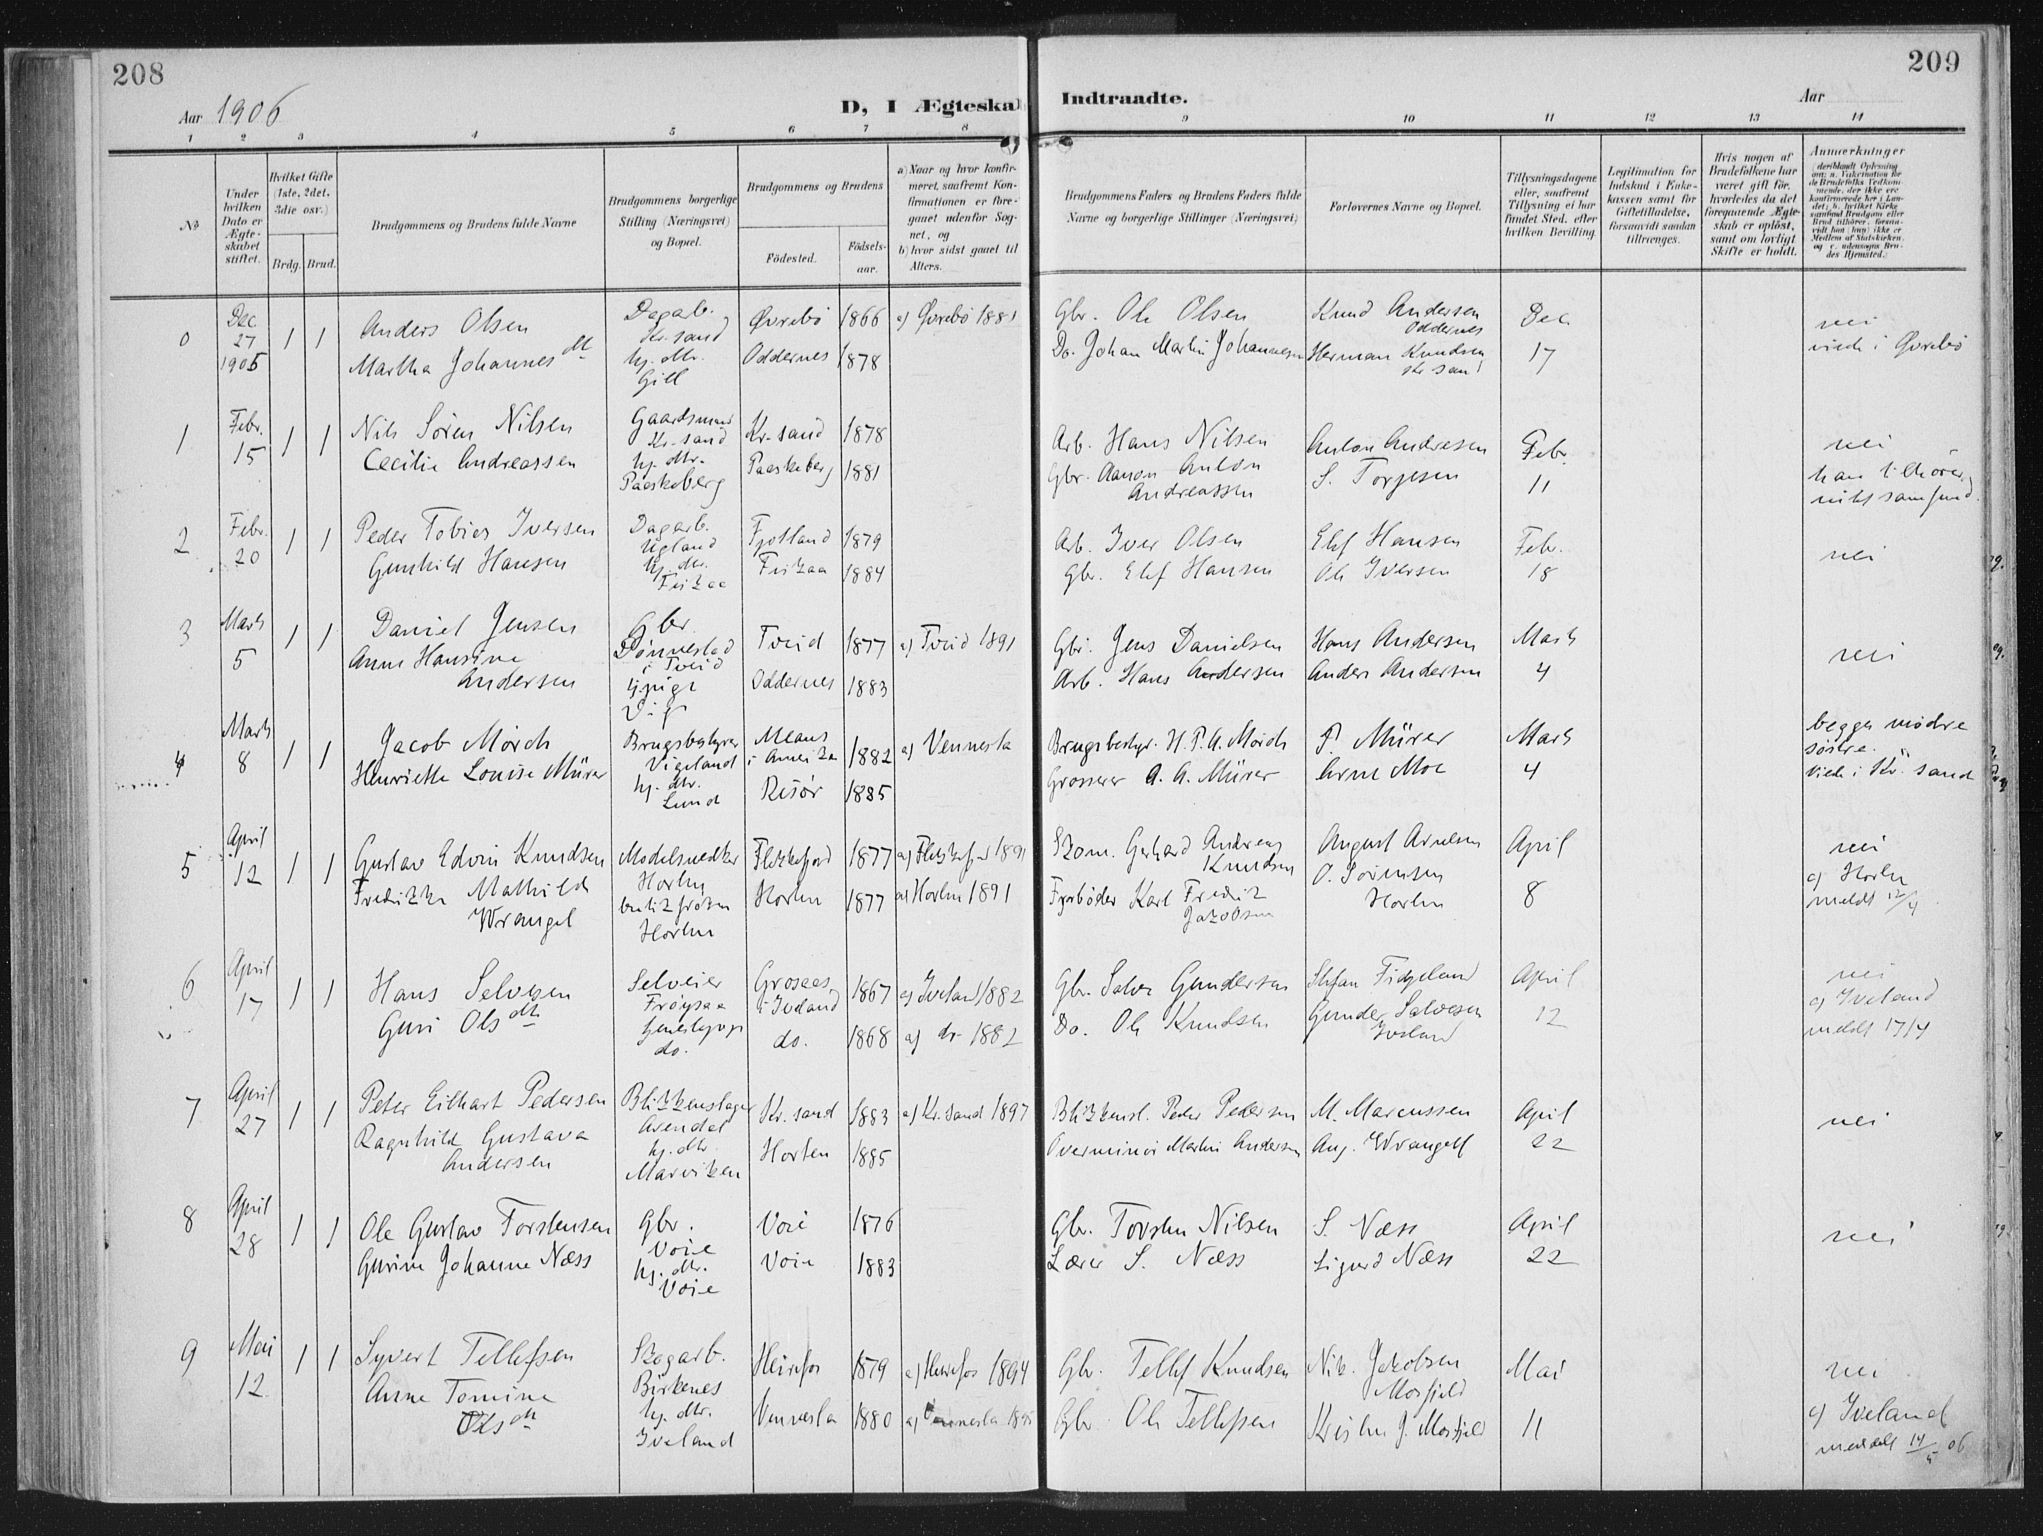 208
Aar 1906
D, I Ægteska
1 2 3 4 5 6 7 8
No
Under hvilken Dato er Ægteskabet stiftet.
Hvilket Gifte (1ste, 2det, 3die osv.)
Brdg. Brud.
Brudgommens og Brudens fulde Navne
Brudgommens borgerlige Stilling (Næringsvei) og Bopæl.
Brudgommens og Brudens
Födested.
Födsels-aar.
a) Naar og hvor konfirmeret, saafremt Konfirmationen er foregaaet udenfor Sognet, og
b) hvor sidst gaaet til Alters.
0 Dec 27 1905 1 1
Anders Olsen Dagarb. Kr.sand Øvrebø 1866 a) Øvrebø 1881
Martha Johannesdt hj. dtr. Gill Oddernes 1878
1 Febr. 15 1 1
Nils Sören Nilsen Kr-sand Kr-sand 1878
Cecilie Andreassen hj. dtr. Paaskeberg Paaskeberg 1881
2 Febr. 20 1 1
Peder Tobias Iversen Dagarb. Ugland Fjotland 1879
Gunhild Hansen hj. dtr. Frikaa Frikaa 1884
3 Marts 5 1 1
Daniel Jensen Gbr. Dönnestad i Tveid Tveid 1877 a) Tveid 1891
Anne Hansine Andersen Oddernes 1883
4 Marts 8 1 1
Jacob Mörch Brugsbestyrer Vigeland i Amerika 1882 a) Vennesla
Henriette Louise Mürer hj. dtr. Lund Risör 1885
5 April 12 1 1
Gustav Edvin Knudsen Modelsnedker Horten Flekkefjord 1877 a) Flekkefjord 1891
Fredrikke Mathilde Wrangel Horten Horten 1877 a) Horten 1891
6 April 17 1 1
Hans Selvesen Selveier Frøysaa Grosaas i Iveland 1867 a) Iveland 1882
Guri Olsdtr do. do. 1868 a) do 1882
7 April 27 1 1
Peter Eilhart Pedersen Blikkenslager Arendal Kr. sand 1883 a) Kr. sand 1897
Ragnhild Gustava Andersen hj. dtr. Marviken Horten 1885
8 April 28 1 1
Ole Gustav Torstensen Gbr. Voie Voie 1876
Gurine Johanne Næss hj. dtr. Voie Voie 1883
9 Mai 12 1 1
Syvert Tellefsen Skogarb. Birkenes Heirefos 1879 a) Heirefos 1894
Anne Tomine Olsdtr hj. dtr. Iveland Vennesla 1880 a) Vennesla 1895
209
Indtraadte.
Aar
9 10 11 12 13 14
Brudgommens Faders og Brudens Faders fulde Navne og borgerlige Stillinger (Næringsvei)
Forlovernes Navne og Bopæl.
Tillysningsdagene eller, saafremt Tillysning ei har fundet Sted, efter hvilken Bevilling
Legitimation for Indskud i Enkekassen samt for Giftetilladelse, forsaavidt saadan tiltrænges.
Hvis nogen af Brudefolkene har været gift för, hvorledes da det foregaaende Ægteskab er oplöst, samt om lovligt Skifte er holdt.
Anmærkninger
Gbr. Ole Olsen Knud Andersen Oddernes Dec. nei
Do. Johan Martin Johannesen Herman Knudsen Kr sand 17 viede i Øvrebö
Arb. Hans Nilsen Anton Andresen Febr. nei
Gbr. Aanon Anton Andreassen S. Torjesen 11 han tilhörer
Arb. Iver Olsen Elef Hansen Febr. nei
Gbr. Elef Hansen Ole Iversen 18
Gbr. Jens Danielsen Hans Andersen Marts nei
Arb. Hans Andersen Anders Andersen 4
Brugsbestyr. H. P. A. Mörch P. Mürer Marts begges mödre söstre.
Grosserer A. A. Mürer Arne Moe 4 Viede i Kr. sand
Skom. Gerhard Andreas Knudsen August Arnesen April nei
Fyrböder Karl Fredrik Jakobsen O. Sörensen Horten 8 c) Horten meldt 12/4
Gbr. Salve Gundersen Stefan Fidjeland April nei
Do. Ole Knudsen Gunder Salvesen Iveland 12 c) Iveland meldt 17/4
Blikkensl. Peder Pedersen M. Marcussen April nei
Overminör Martin Andersen Aug. Wrangell 22
Gbr. Torsten Nilsen S. Næss April nei
Lærer S. Næss Sigurd Næss 22
Gbr. Tellef Knudsen Nils Jakobsen Mosfjeld Mai nei
Gbr. Ole Tellefsen Kristen J. Mosfjeld 11 c) Iveland meddelt 14/5 06